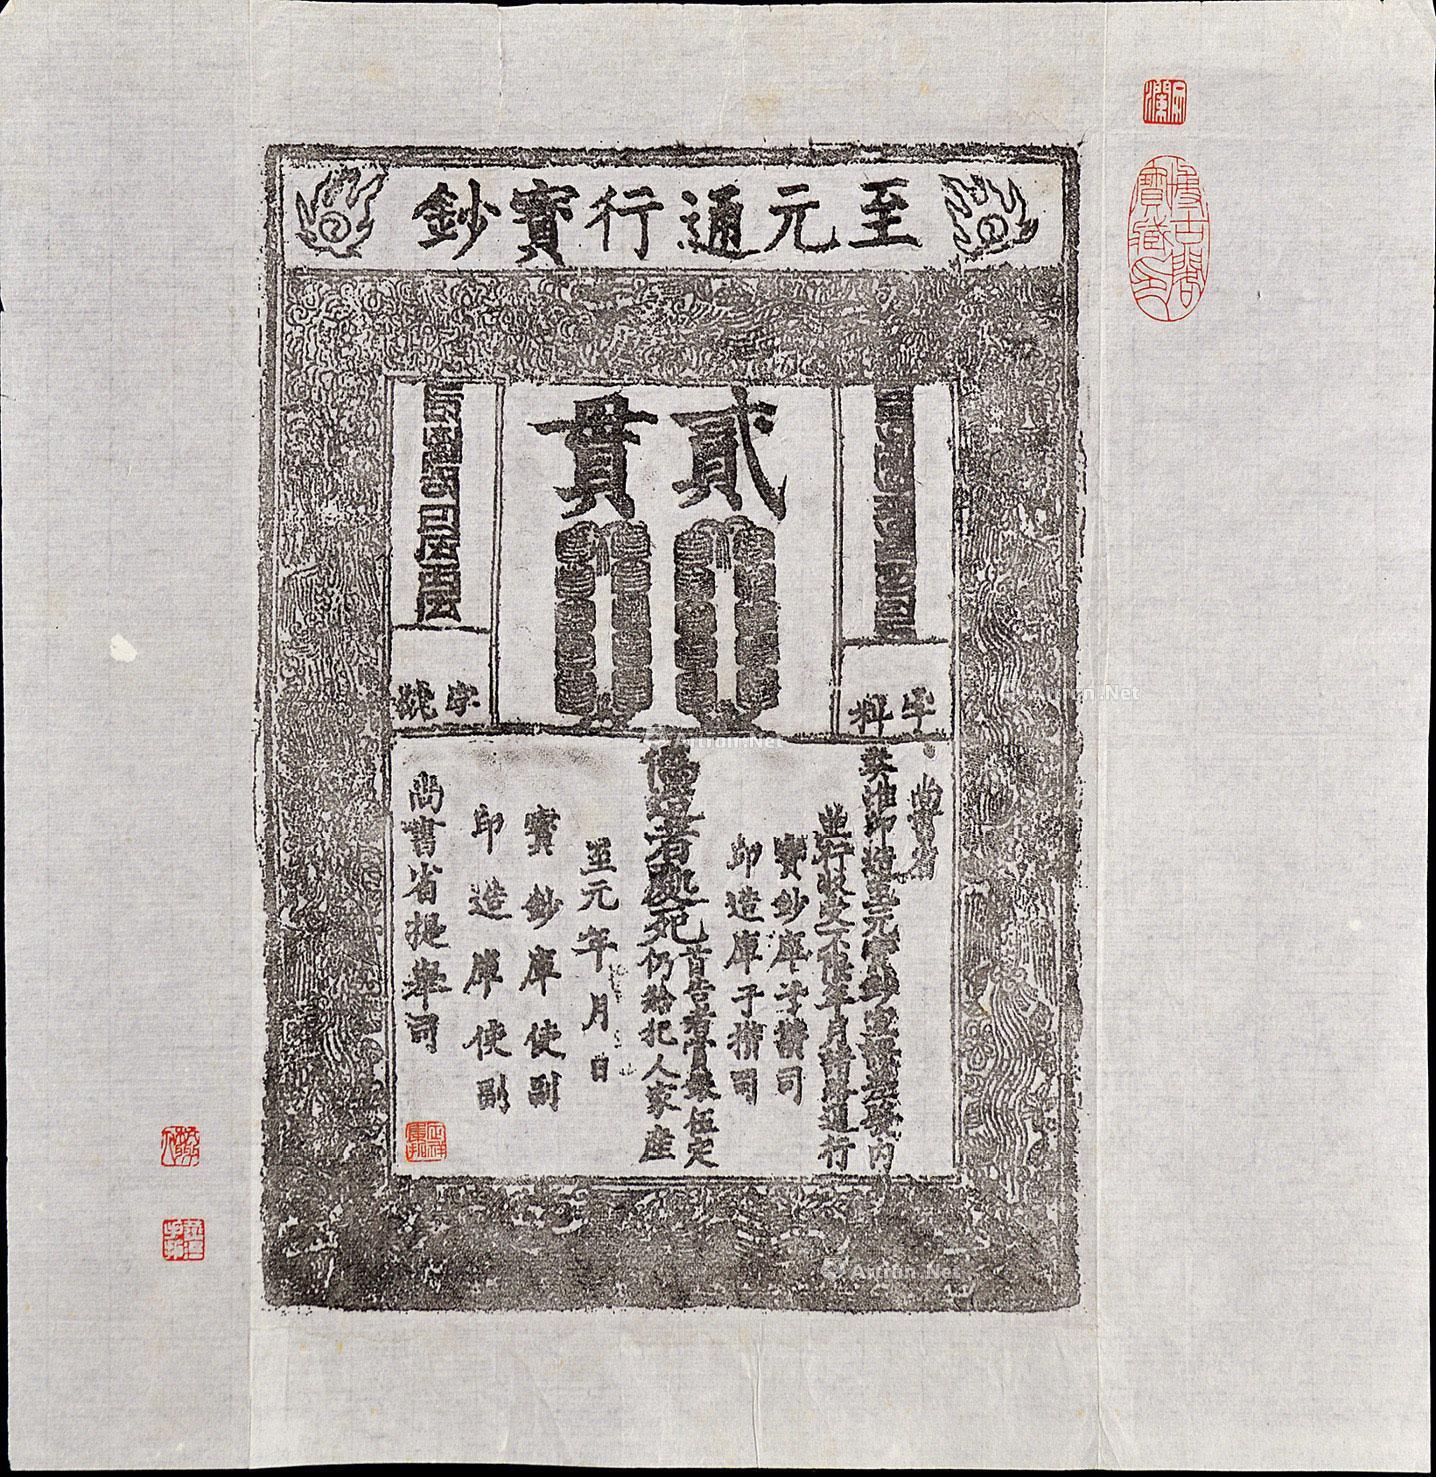 至元通行寶鈔
貳貫
字料
字號
尚書省
奏准印造至元寶鈔宣課差發內
並行收受不限年月諸路通行
寶鈔庫子攢司
印造庫子攢司
偽造者處死
首告者賞銀伍定
仍給犯人家產
至元年月日
寶鈔庫使副
印造庫使副
尚書省提舉司
Artron.Net
Artron.Net
Artron.Net